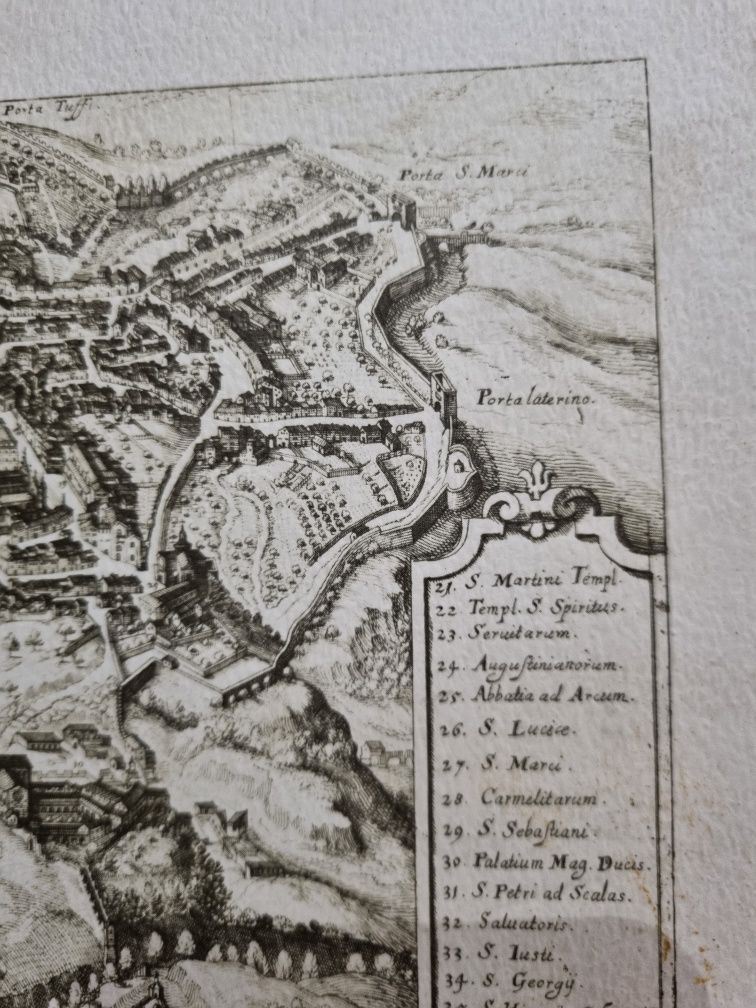 Porta Tuffi.
Porta S. Marci
Porta laterino.
21. S. Martini Templ.
22 Templ. S. Spiritus.
23. Seruitarum.
24. Augustinianorum.
25. Abbatia ad Arcum.
26. S. Luciæ.
27. S. Marci.
28 Carmelitarum.
29. S. Sebastiani.
30 Palatium Mag. Ducis.
31. S. Petri ad Scalas.
32. Saluatoris.
33. S. Iusti.
34. S. Georgÿ.